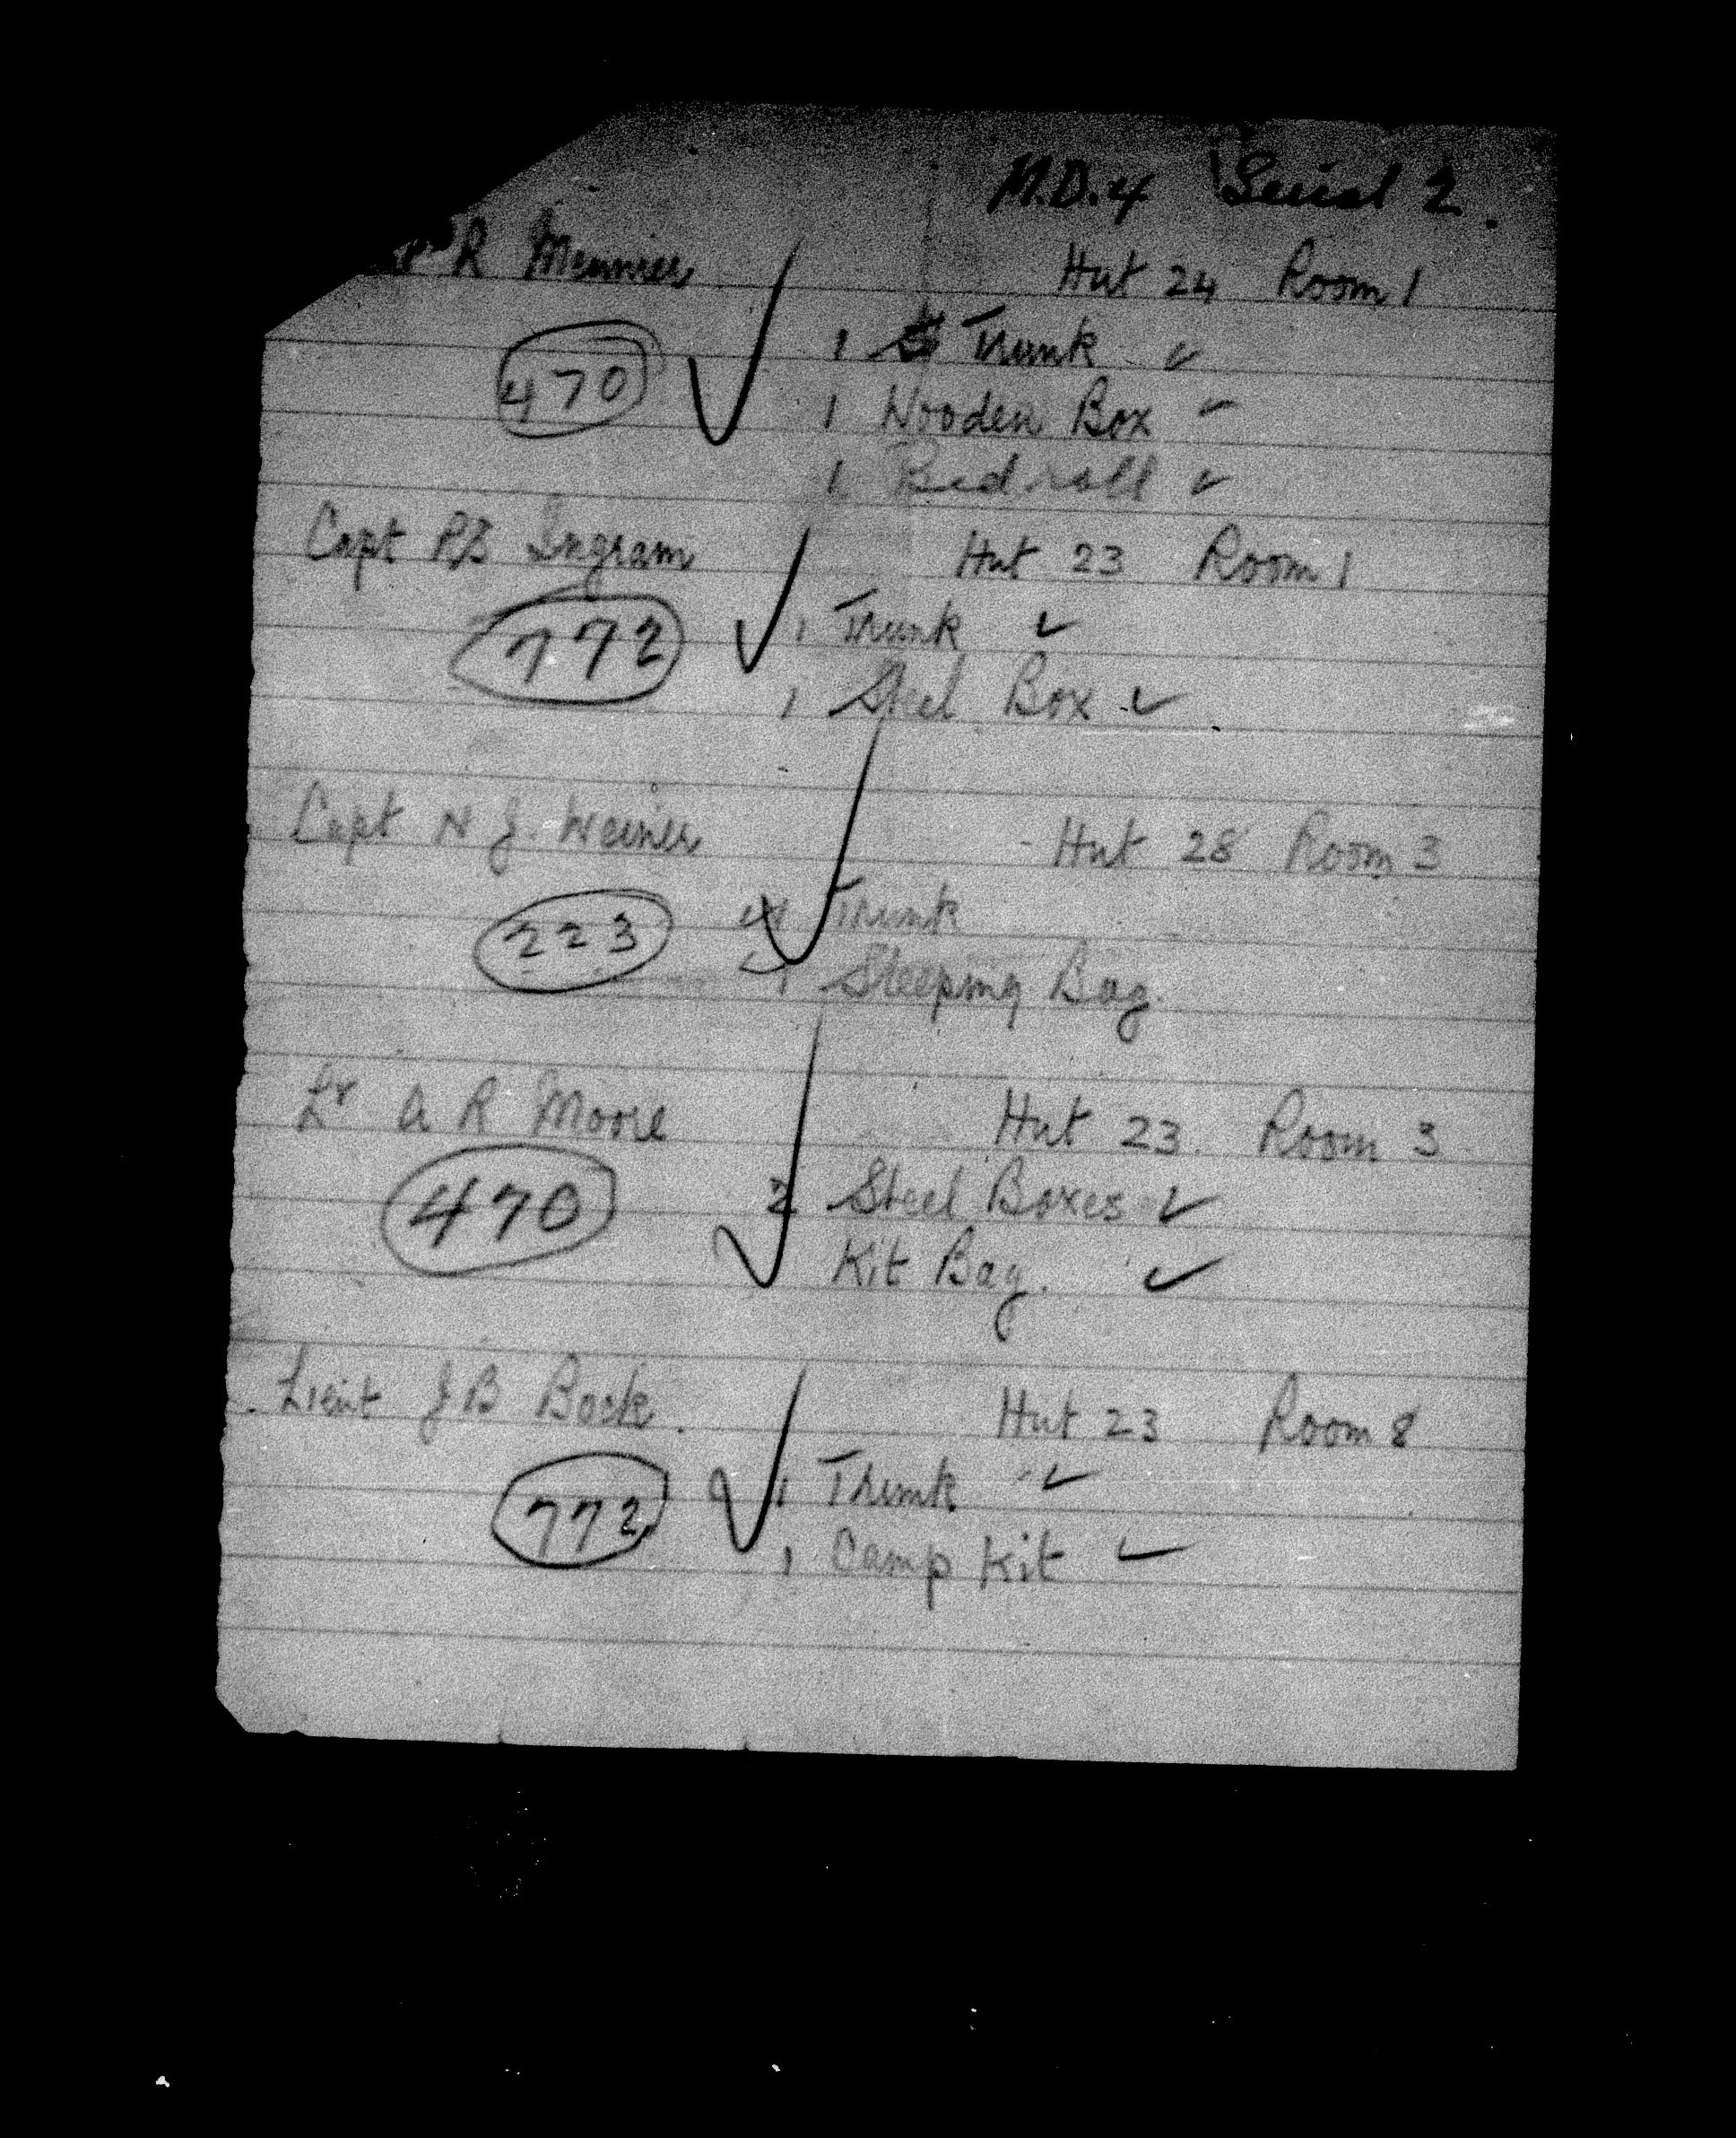 M.D.4 Serial 2.
R Meunier Hut 24 Room 1
470 1 Trunk ✓
1 Wooden Box ✓
1 Bedroll ✓
Capt RB Ingram Hut 23 Room 1
772 1 Trunk ✓
1 Steel Box ✓
Capt N J. Weiner - Hut 28 Room 3
223 Trunk
1 Sleeping Bag.
Lr A R Moore Hut 23. Room 3
470 2 Steel Boxes ✓
Kit Bag. ✓
Lieut J B Bock. Hut 23 Room 8
772 1 Trunk ✓
1 Camp Kit ✓